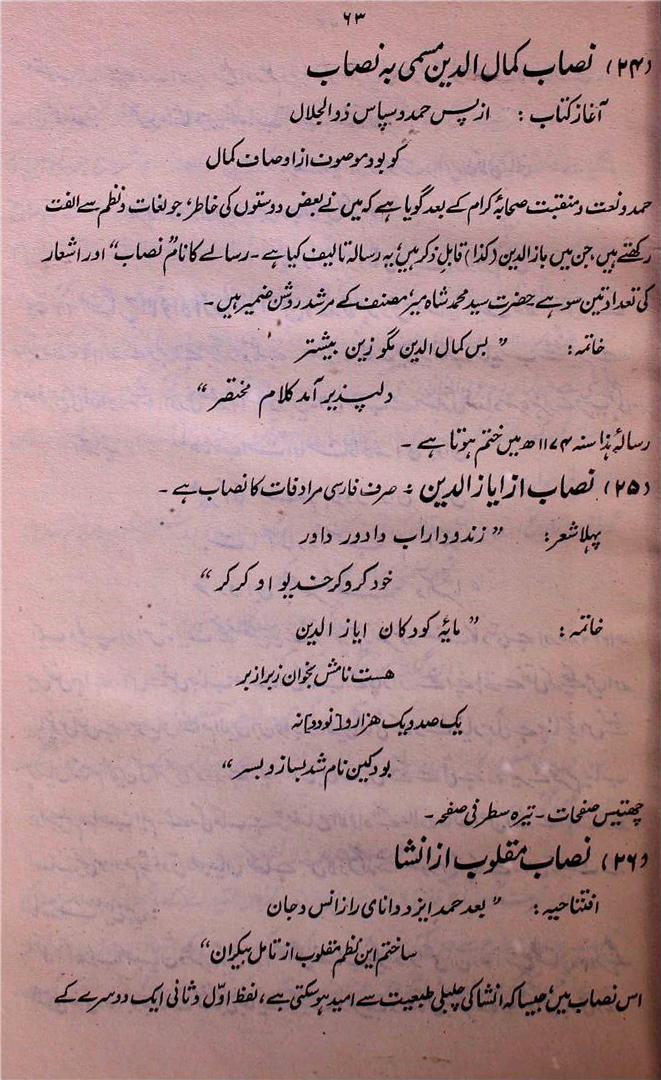 ۶۳
(۲۴) نصاب کمال الدین مسمی بہ نصاب
آغاز کتاب : از پس حمد و سپاس ذو الجلال
کو بود موصوف از اوصاف کمال
حمد و نعت و منقبت صحابۂ کرام کے بعد گویا ہے کہ میں نے بعض دوستوں کی خاطر، جو لغات و نظم سے الفت
رکھتے ہیں، جن میں باز الدین (کذا) قابل ذکر ہیں، یہ رسالہ تالیف کیا ہے۔ رسالے کا نام "نصاب" اور اشعار
کی تعداد تین سو ہے حضرت سید محمد شاہ میر، مصنف کے مرشد روشن ضمیر ہیں۔
خاتمہ : "بس کمال الدین مگو زین بیشتر
دلپذیر آمد کلام مختصر"
رسالہ ہذا سنہ ۱۱۷۴ھ میں ختم ہوتا ہے۔
(۲۵) نصاب از ایاز الدین : صرف فارسی مرادفات کا نصاب ہے۔
پہلا شعر : "زند و داراب دادور داور
خود کروکر خدیو او کرکر"
خاتمہ : "مایۂ کودکان ایاز الدین
هست نامش بخوان زبر از بر
یک صد و یک هزار و [نود] نہ
بود کین نام شد بساز و بسر"
چھتیس صفحات۔ تیرہ سطر فی صفحہ۔
(۲۶) نصاب مقلوب از انشا
افتتاحیہ : "بعد حمد ایزد دانای راز انس و جان
ساختم این نظم مقلوب از تامل بیکران"
اس نصاب میں، جیسا کہ انشا کی چلبلی طبیعت سے امید ہو سکتی ہے، لفظ اوّل و ثانی ایک دوسرے کے